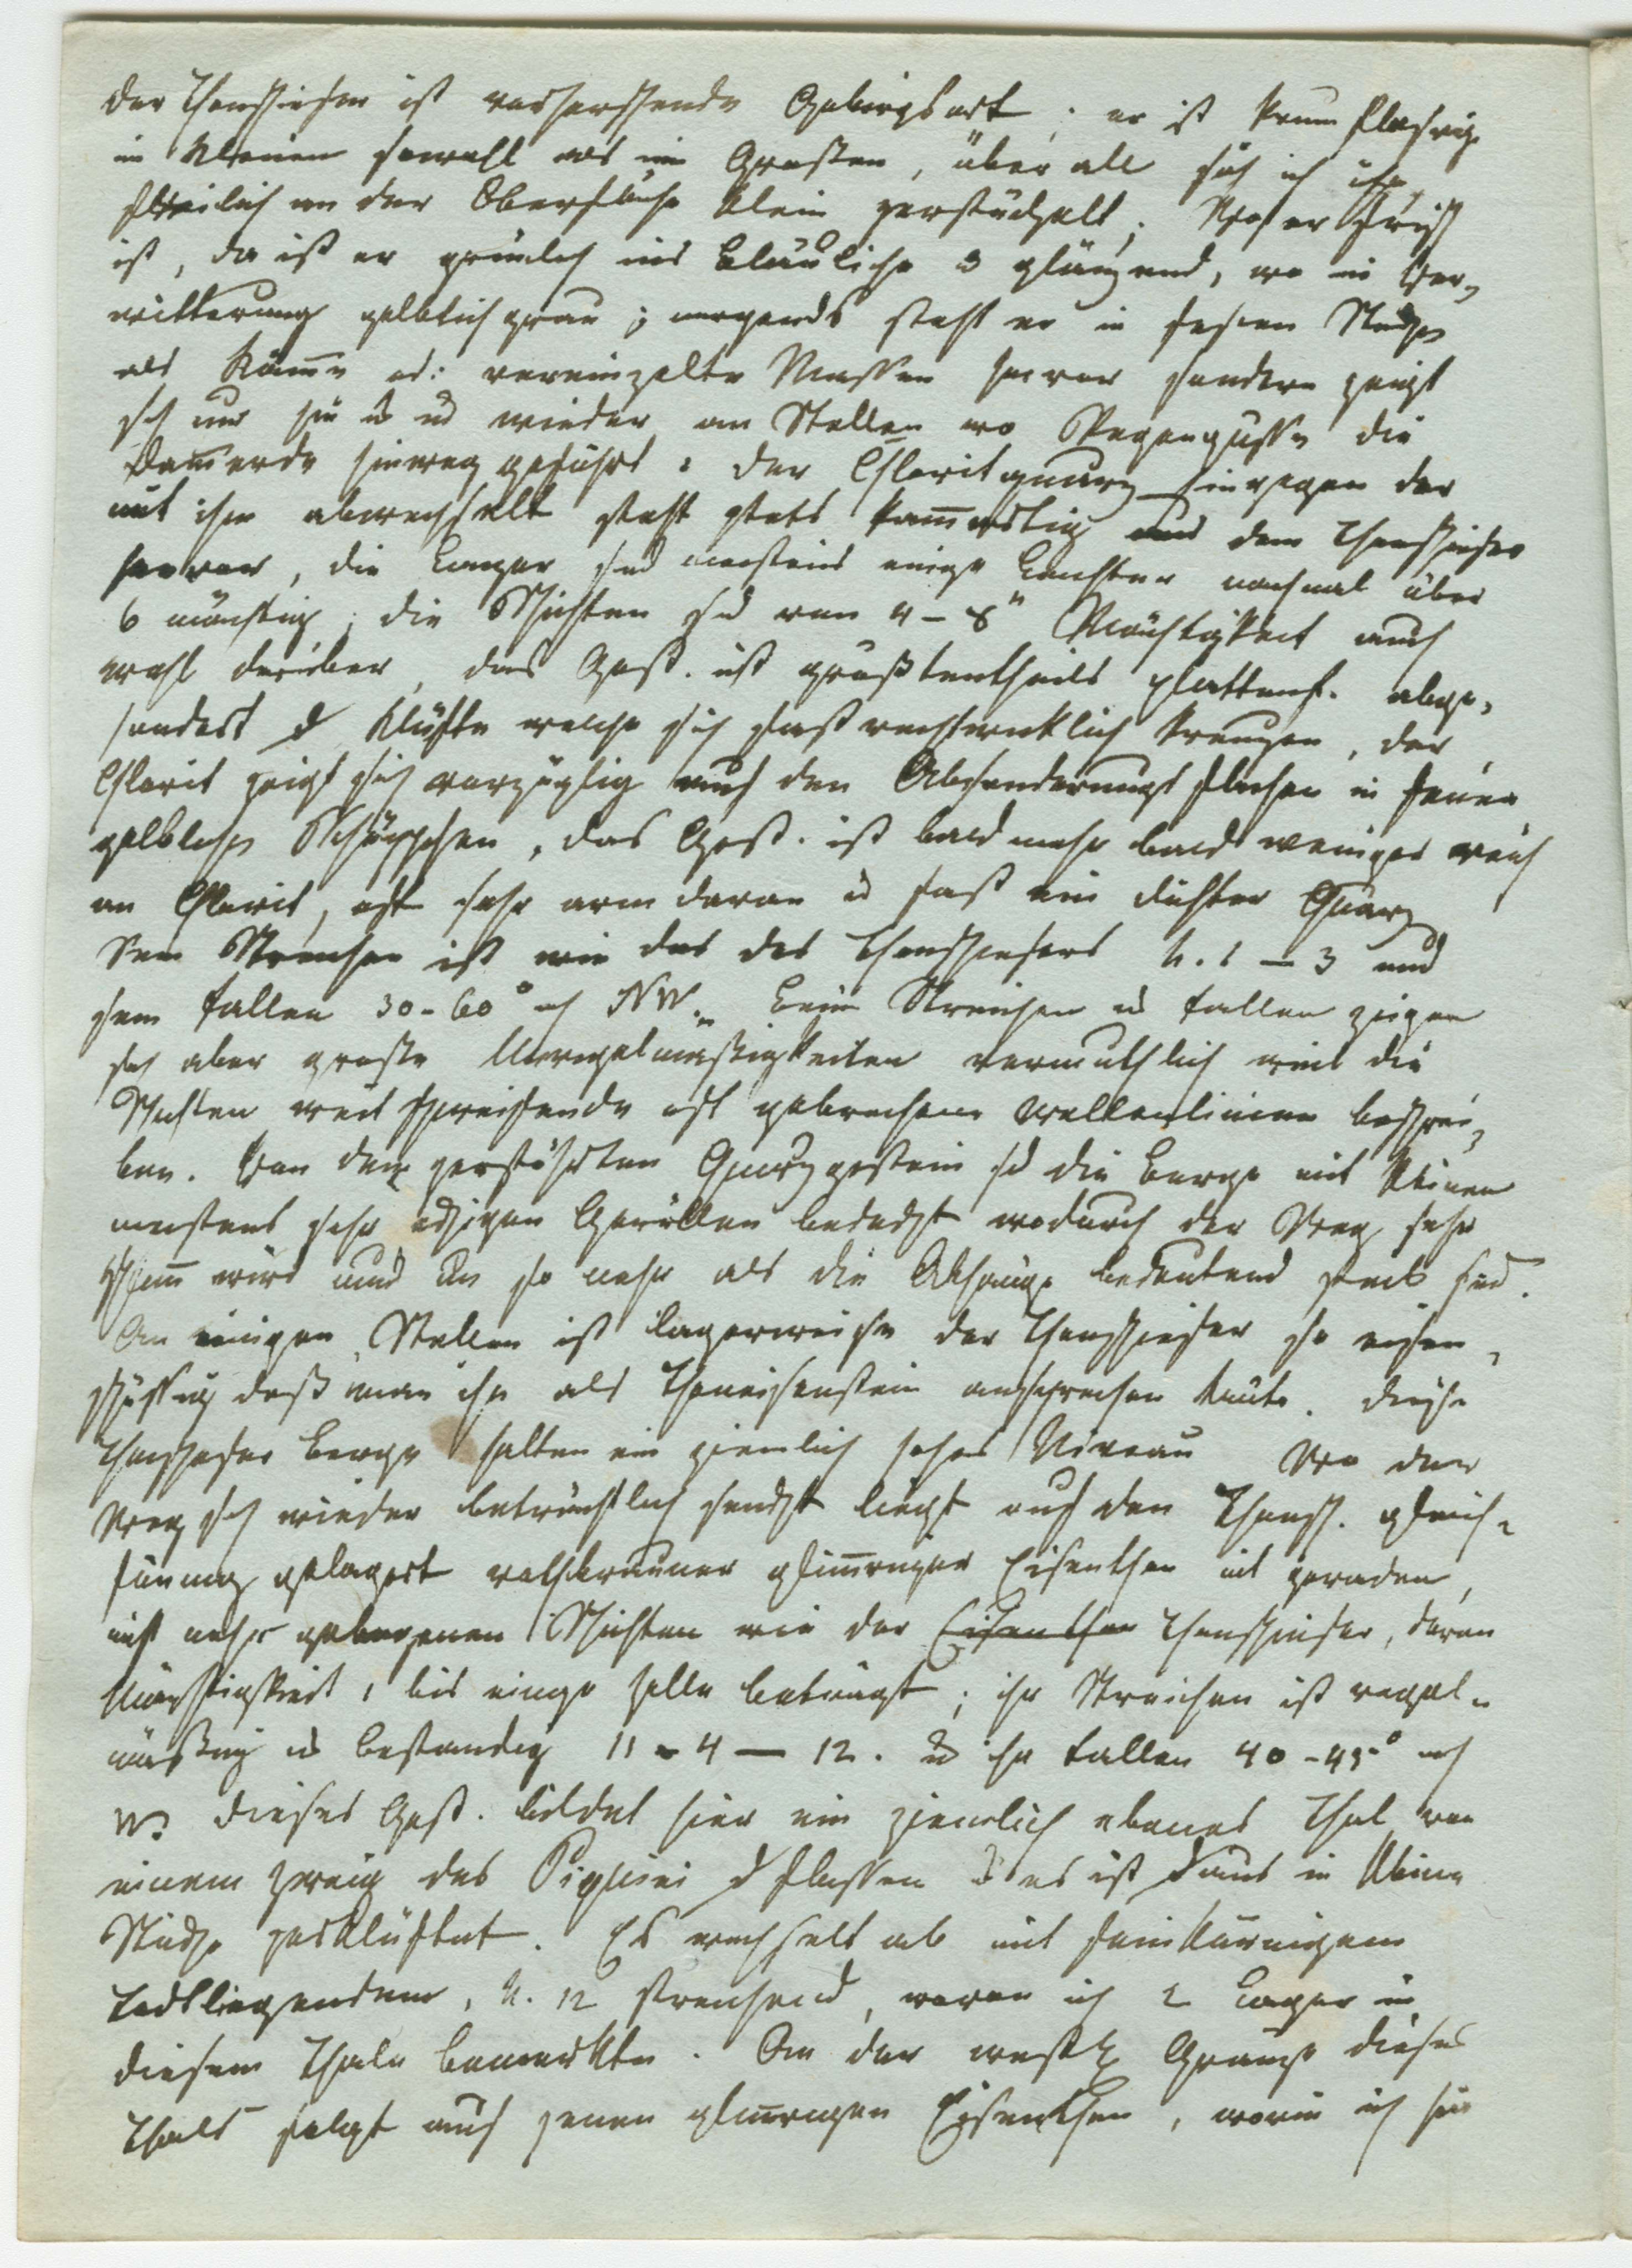 der Thonschiefer ist vorherschende Gebirgsart; er ist krum flasrig
im Kleinen sowohl als im Grosten, über all sah ich ihn
freilich an der Oberfläche klein zerstückelt; Wo er frisch
ist, da ist er grünlich ins bläuliche u glänzend, wo in Ver-
witterung gelblich grau; nirgends steht er in festen Stöcken
als Kämme od: vereinzelte Massen hervor sondern zeigt
sich nur hie u wieder an Stellen wo Regengusse die
Damerde hinweg geführt. Der Chloritquarz hingegen der
mit ihm abwechselt steht stets kammartig aus dem Thonschiefer
hervor, die Lager sind meistens einige Lachter mal über
6 mächtig; die Schichten sind von 4-8" Mächtigkeit auch
wohl darüber, das Gest. ist großtentheils plattenf. abge-
sondert d Klüfte welche sich fast rechtwinklich kreuzen, der
Chlorit zeigt sich vorzüglig auf den Absonderungs flachen in feinen
gelblichen Schüppchen, das Gest. ist bald mehr bald weniger reich
an Chlorit, oft sehr arm daran u fast ein dichter Quarz
Sein Streichen ist wie das des Thonschiefers h. 1 — 3 und
sein Fallen 30-60° nach NW. Beim Streichen u Fallen zeigen
sich aber große Unregelmäßigkeiten vermuthlich weil die
Schichten weit schweifende oft gebrochene Wellenlinien beschrei-
ben. Von dem zerstöhrten Quarzgestein sind die Berge mit kleinen
meistens sehr eckigen Geröllen bedeckt wodurch der Weg sehr
schlimm wird und um so mehr als die Abhänge bedeutend steil sind.
An einigen Stellen ist lagerweise der Thonschiefer so eisen-
schüssig daß man ihn als Thoneisenstein ansprechen könte. Diese
Thonschiefer Berge halten ein ziemlich hohes Niveau Wo der
Weg sich wieder beträchtlich senckt liegt auf den Thonsch. gleich-
förmig gelagert rothbrauner glimriger Eisenthon mit geraden,
nicht mehr gebogenen Schichten wie der Eisenthon Thonschiefer, deren
Mächtigkeit, bis einige Zolle beträgt; ihr Streichen ist regel-
mäßig u bestandig 11 - 4 — 12. u ihr Fallen 40 - 45° nach
W. Dieses Gest. bildet hier ein ziemlich ebenes Thal von
einem Zweig des Piquiri d flossen u es ist in kleine
Stücke zerklüftet. Es wechselt ab mit feinkörnigem
Todtliegendem, h. 12 streichend, wovon ich 2 Lager in
diesem Thale bemerkte. An der westl Gränze dieses
Thals folgt auf jenen glimrigen Eisenthon, worin ich hie